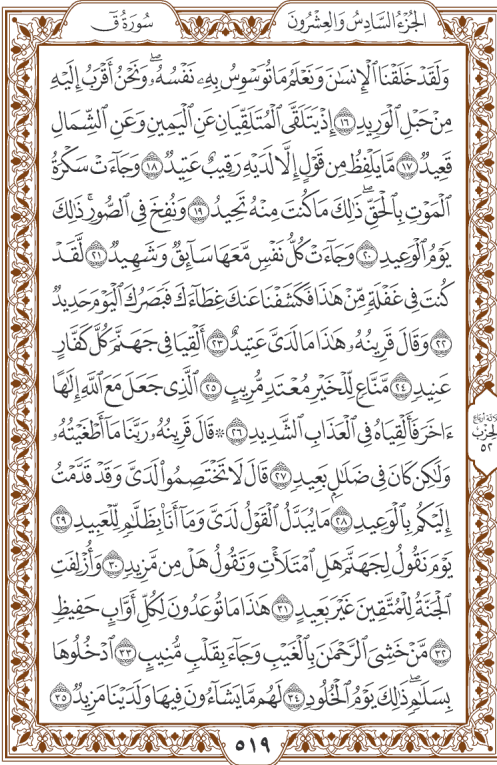 سُورَةُ قٓ
الجُزْءُ السَّادِسُ وَالعِشْرُونَ
وَلَقَدْ خَلَقْنَا ٱلْإِنسَٰنَ وَنَعْلَمُ مَا تُوَسْوِسُ بِهِۦ نَفْسُهُۥۖ وَنَحْنُ أَقْرَبُ إِلَيْهِ
مِنْ حَبْلِ ٱلْوَرِيدِ ١٦ إِذْ يَتَلَقَّى ٱلْمُتَلَقِّيَانِ عَنِ ٱلْيَمِينِ وَعَنِ ٱلشِّمَالِ
قَعِيدٌ ١٧ مَّا يَلْفِظُ مِن قَوْلٍ إِلَّا لَدَيْهِ رَقِيبٌ عَتِيدٌ ١٨ وَجَآءَتْ سَكْرَةُ
ٱلْمَوْتِ بِٱلْحَقِّۖ ذَٰلِكَ مَا كُنتَ مِنْهُ تَحِيدُ ١٩ وَنُفِخَ فِي ٱلصُّورِۚ ذَٰلِكَ
يَوْمُ ٱلْوَعِيدِ ٢٠ وَجَآءَتْ كُلُّ نَفْسٍ مَّعَهَا سَآئِقٌ وَشَهِيدٌ ٢١ لَّقَدْ
كُنتَ فِي غَفْلَةٍ مِّنْ هَٰذَا فَكَشَفْنَا عَنكَ غِطَآءَكَ فَبَصَرُكَ ٱلْيَوْمَ حَدِيدٌ
٢٢ وَقَالَ قَرِينُهُۥ هَٰذَا مَا لَدَيَّ عَتِيدٌ ٢٣ أَلْقِيَا فِي جَهَنَّمَ كُلَّ كَفَّارٍ
عَنِيدٍ ٢٤ مَّنَّاعٍ لِّلْخَيْرِ مُعْتَدٍ مُّرِيبٍ ٢٥ ٱلَّذِي جَعَلَ مَعَ ٱللَّهِ إِلَٰهًا
ءَاخَرَ فَأَلْقِيَاهُ فِي ٱلْعَذَابِ ٱلشَّدِيدِ ٢٦ ۞ قَالَ قَرِينُهُۥ رَبَّنَا مَآ أَطْغَيْتُهُۥ
وَلَٰكِن كَانَ فِي ضَلَٰلٍۭ بَعِيدٍ ٢٧ قَالَ لَا تَخْتَصِمُوا۟ لَدَيَّ وَقَدْ قَدَّمْتُ
إِلَيْكُم بِٱلْوَعِيدِ ٢٨ مَا يُبَدَّلُ ٱلْقَوْلُ لَدَيَّ وَمَآ أَنَا۠ بِظَلَّٰمٍ لِّلْعَبِيدِ ٢٩
يَوْمَ نَقُولُ لِجَهَنَّمَ هَلِ ٱمْتَلَأْتِ وَتَقُولُ هَلْ مِن مَّزِيدٍ ٣٠ وَأُزْلِفَتِ
ٱلْجَنَّةُ لِلْمُتَّقِينَ غَيْرَ بَعِيدٍ ٣١ هَٰذَا مَا تُوعَدُونَ لِكُلِّ أَوَّابٍ حَفِيظٍ
٣٢ مَّنْ خَشِيَ ٱلرَّحْمَٰنَ بِٱلْغَيْبِ وَجَآءَ بِقَلْبٍ مُّنِيبٍ ٣٣ ٱدْخُلُوهَا
بِسَلَٰمٍۖ ذَٰلِكَ يَوْمُ ٱلْخُلُودِ ٣٤ لَهُم مَّا يَشَآءُونَ فِيهَا وَلَدَيْنَا مَزِيدٌ ٣٥
ثلاثة أرباع
الحزب
٥٢
٥١٩